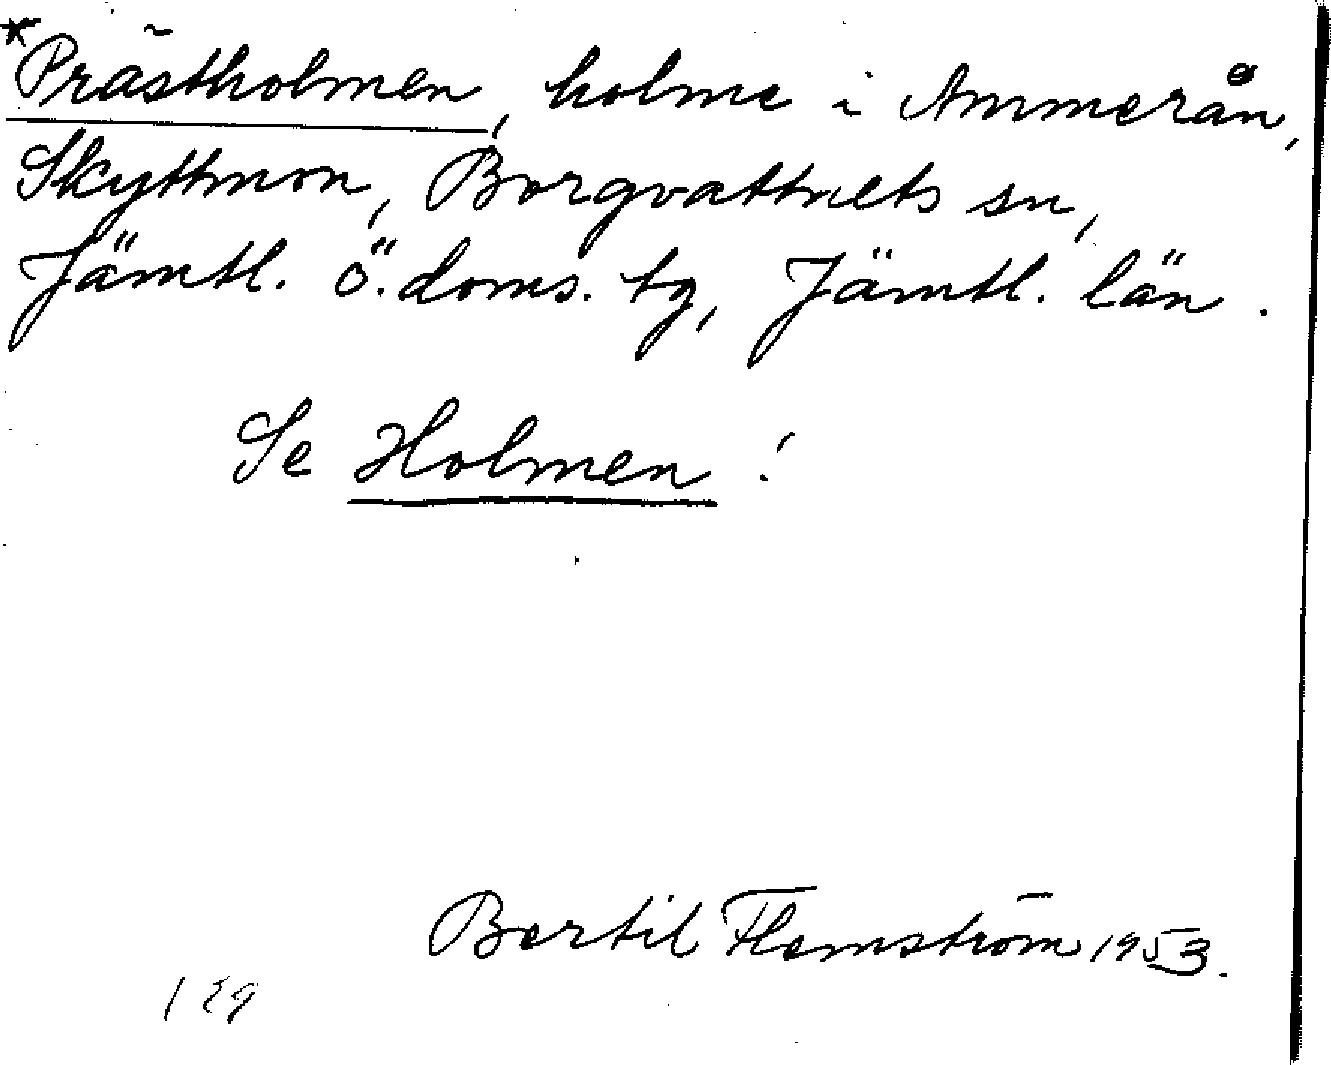 *Prästholmen, holme i Ammerån,
Skyttmon, Borgvattnets sn,
Jämtl. ö. doms. tg, Jämtl. län.
Se Holmen!
Bertil Flemström 1953.